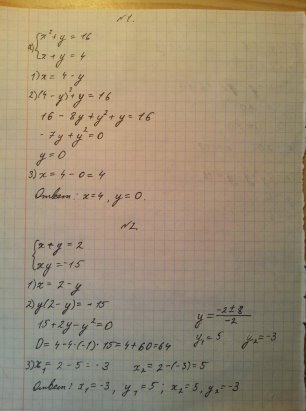 №1.
а) { x² + y = 16
x + y = 4
1) x = 4 - y
2) (4 - y)² + y = 16
16 - 8y + y² + y = 16
- 7y + y² = 0
y = 0
3) x = 4 - 0 = 4
Ответ: x = 4, y = 0.
№2
{ x + y = 2
xy = -15
1) x = 2 - y
2) y(2 - y) = -15
15 + 2y - y² = 0
D = 4 - 4·(-1)·15 = 4 + 60 = 64
y = (-2 ± 8)/-2
y₁ = 5 y₂ = -3
3) x₁ = 2 - 5 = -3 x₂ = 2 - (-3) = 5
Ответ: x₁ = -3, y₁ = 5; x₂ = 5, y₂ = -3